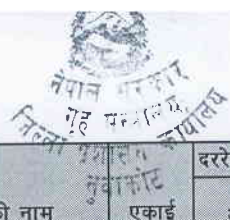 नेपाल सरकार
गृह मन्त्रालय
जिल्ला प्रशासन कार्यालय
नुवाकोट
दररे
को नाम
एकाई